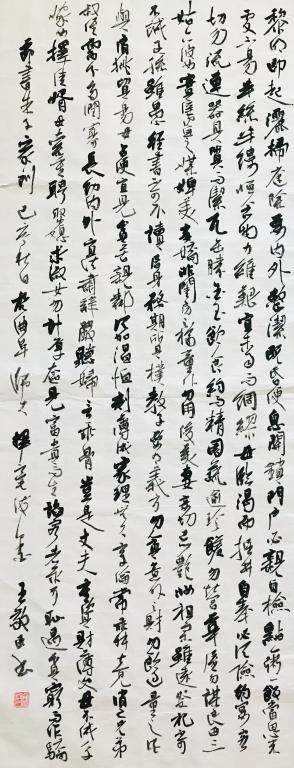 黎明即起灑掃庭除要内外整潔既昏便息關鎖門户必親自檢點一粥一飯當思來
處不易半絲半縷恒念物力維艱宜未雨而綢繆毋臨渴而掘井自奉必須儉約宴客
切勿流連器具質而潔瓦缶勝金玉飲食約而精園蔬愈珍饈勿營華屋勿謀良田三
姑六婆實淫盗之媒婢美妾嬌非閨房之福童僕勿用俊美妻妾切忌艷妝祖宗雖遠祭祀不可
不誠子孫雖愚經書不可不讀居身務期質樸教子要有義方勿貪意外之財勿飲過量之酒
與肩挑貿易毋占便宜見貧苦親鄰須加温恤刻薄成家理無久享倫常乖舛立見消亡兄弟
叔侄需分多潤寡長幼内外宜法肅辭嚴聽婦言乖骨肉豈是丈夫重資財薄父母不成人子
嫁女擇佳婿毋索重聘娶媳求淑女勿計厚奩見富貴而生諂容者最可耻遇貧窮而作驕
書朱子家訓 己亥秋日於曲阜師大 王 書